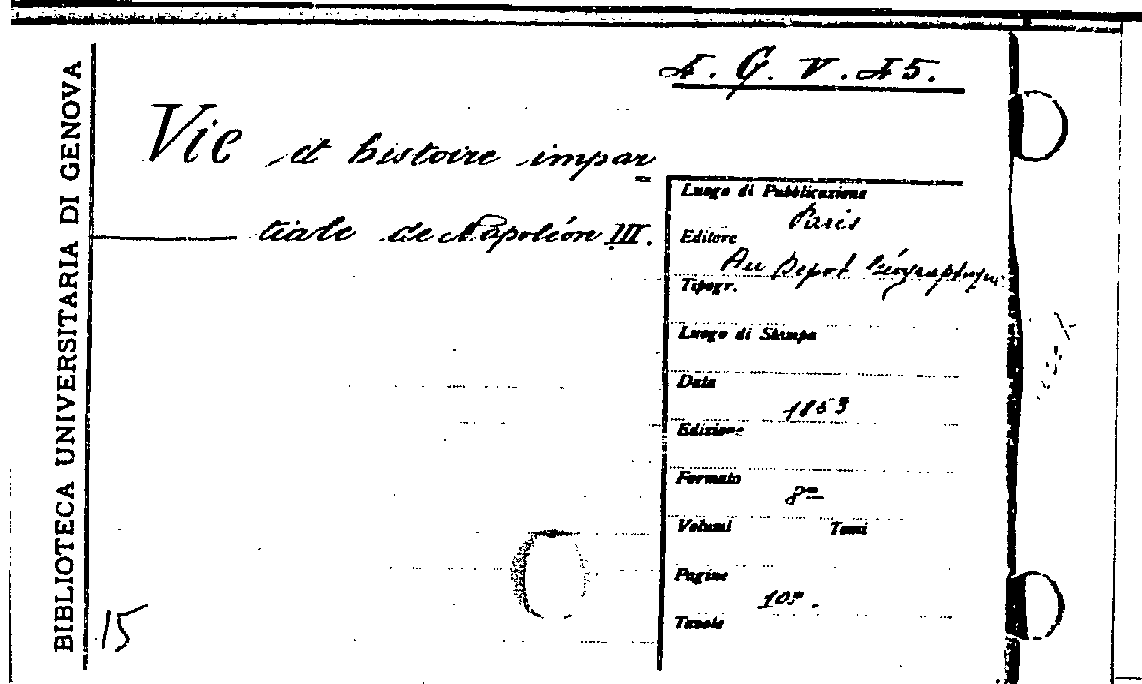 BIBLIOTECA UNIVERSITARIA DI GENOVA
4. G. V. 45.
Vie et histoire impar
tiale de Napoléon III.
Luogo di Pubblicazione
Paris
Editore
Au Depot Géographique
Tipogr.
Luogo di Stampa
Data
1853
Edizione
Formato
8º
Volumi Tomi
Pagine
108.
Tavole
15